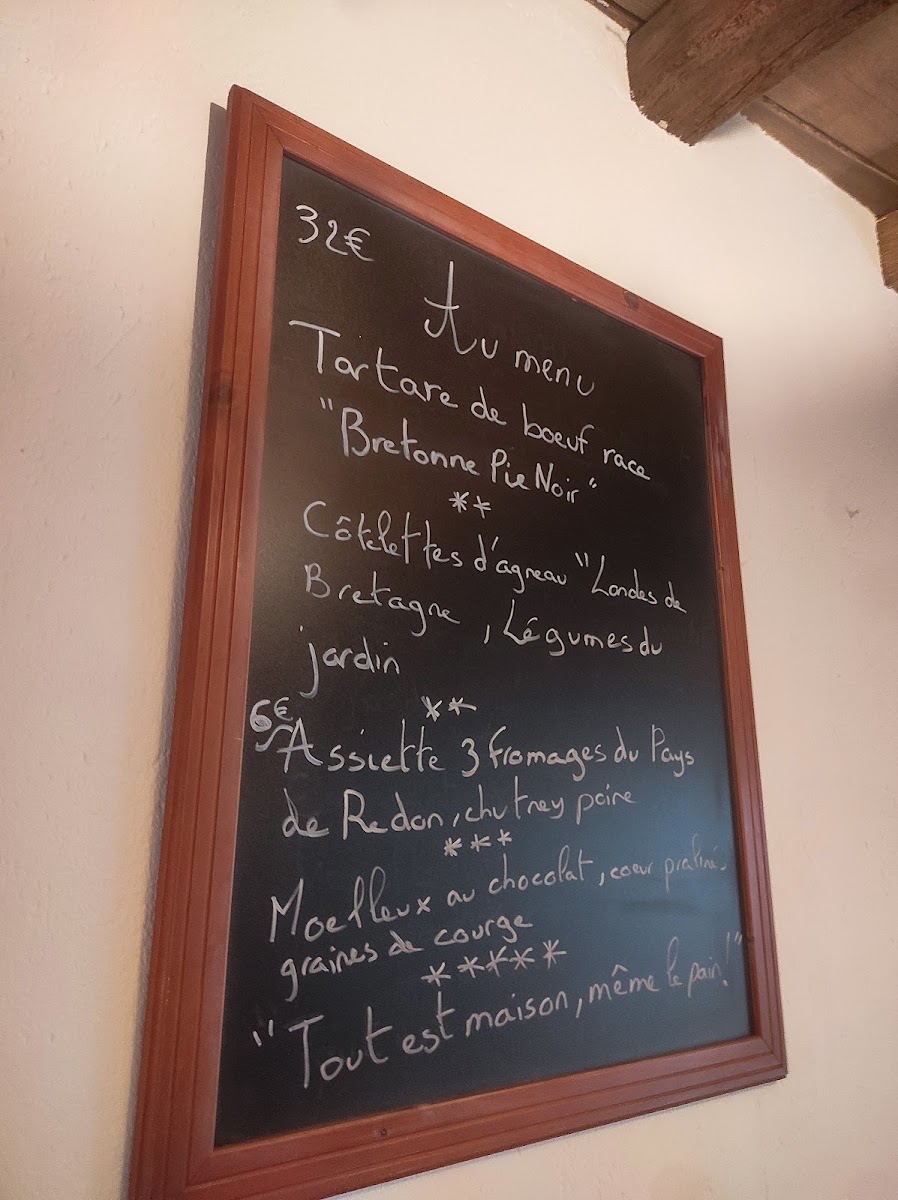 32€
Au menu
Tartare de boeuf race
"Bretonne Pie Noir"
**
Côtelettes d'agneau "Landes de
Bretagne, Légumes du
jardin
**
6€
Assiette 3 fromages du Pays
de Redon, chutney poire
***
Moelleux au chocolat, coeur praliné,
graines de courge
*****
"Tout est maison, même le pain!"